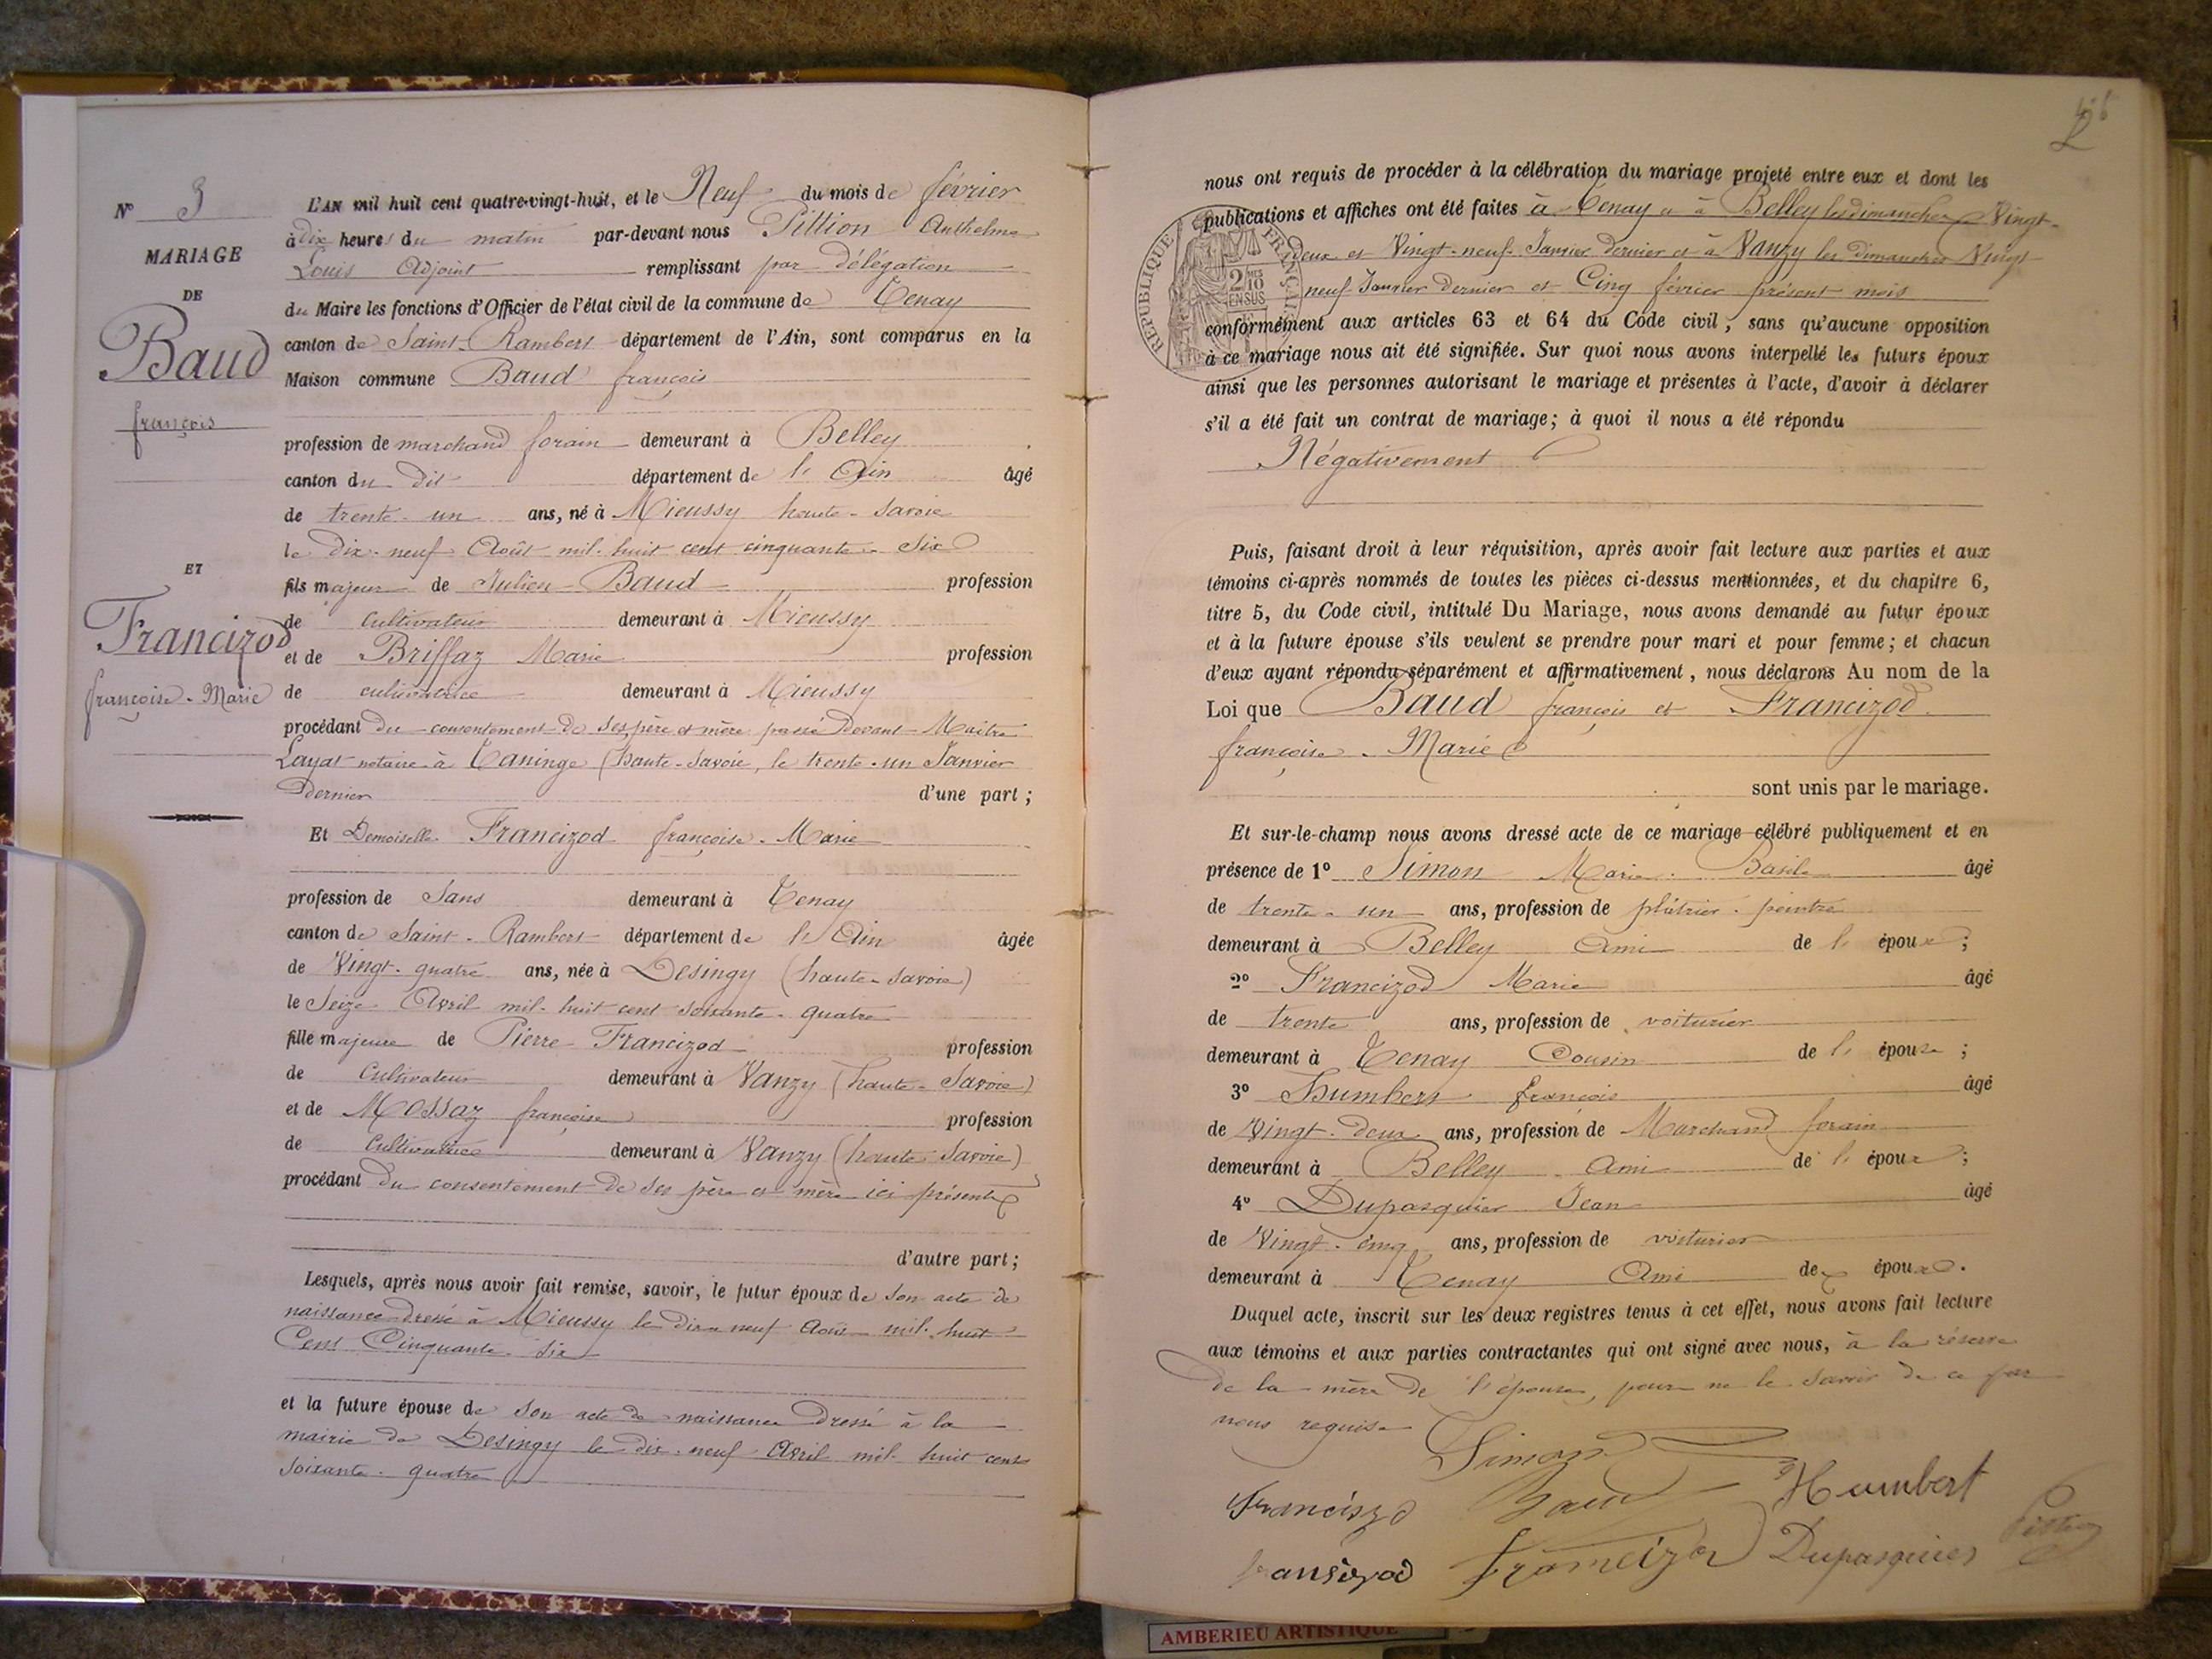 N° 3
MARIAGE
DE
Baud
françois
ET
Francizod
françoise-Marie
L'AN mil huit cent quatre-vingt-huit, et le Neuf du mois de février
à dix heures du matin par-devant nous Pittion Anthelme
Louis Adjoint remplissant par délégation
du Maire les fonctions d'Officier de l'état civil de la commune de Tenay
canton de Saint-Rambert département de l'Ain, sont comparus en la
Maison commune Baud françois
profession de marchand forain demeurant à Belley
canton du dit département de l'Ain âgé
de trente-un ans, né à Mieussy haute-Savoie
le dix-neuf Août mil-huit cent cinquante-Six
fils majeur de Julien Baud profession
de Cultivateur demeurant à Mieussy
et de Briffaz Marie profession
de cultivatrice demeurant à Mieussy
procédant du consentement de ses père et mère passé devant Maître
Layat notaire à Taninge (haute-Savoie, le trente-un Janvier
dernier d'une part ;
Et Demoiselle Francizod françoise-Marie
profession de Sans demeurant à Tenay
canton de Saint-Rambert département de l'Ain âgée
de Vingt-quatre ans, née à Desingy (haute-Savoie)
le Seize Avril mil-huit cent soixante-quatre
fille majeure de Pierre Francizod profession
de Cultivateur demeurant à Vanzy (haute-Savoie)
et de Mossaz françoise profession
de Cultivatrice demeurant à Vanzy (haute Savoie)
procédant du consentement de ses père et mère ici présents
d'autre part ;
Lesquels, après nous avoir fait remise, savoir, le futur époux de son acte de
naissance dressé à Mieussy le dix-neuf Août mil-huit
Cent Cinquante-six
et la future épouse de son acte de naissance dressé à la
mairie de Desingy le dix-neuf Avril mil-huit cent
soixante-quatre
nous ont requis de procéder à la célébration du mariage projeté entre eux et dont les
publications et affiches ont été faites à Tenay et à Belley les dimanches Vingt-
deux et Vingt-neuf Janvier dernier et à Vanzy les dimanches Vingt
neuf Janvier dernier et Cinq février présent mois
RÉPUBLIQUE FRANÇAISE
2 MES
10
EN SUS
conformément aux articles 63 et 64 du Code civil, sans qu'aucune opposition
à ce mariage nous ait été signifiée. Sur quoi nous avons interpellé les futurs époux
ainsi que les personnes autorisant le mariage et présentes à l'acte, d'avoir à déclarer
s'il a été fait un contrat de mariage ; à quoi il nous a été répondu
Négativement
Puis, faisant droit à leur réquisition, après avoir fait lecture aux parties et aux
témoins ci-après nommés de toutes les pièces ci-dessus mentionnées, et du chapitre 6,
titre 5, du Code civil, intitulé Du Mariage, nous avons demandé au futur époux
et à la future épouse s'ils veulent se prendre pour mari et pour femme ; et chacun
d'eux ayant répondu séparément et affirmativement, nous déclarons Au nom de la
Loi que Baud françois et Francizod
françoise-Marie
sont unis par le mariage.
Et sur-le-champ nous avons dressé acte de ce mariage célébré publiquement et en
présence de 1° Simon Marie-Basile âgé
de trente-un ans, profession de plâtrier-peintre
demeurant à Belley Ami de l'époux ;
2° Francizod Marie âgé
de trente ans, profession de voiturier
demeurant à Tenay Cousin de l'épouse ;
3° Humbert françois âgé
de Vingt-deux ans, profession de Marchand forain
demeurant à Belley Ami de l'époux ;
4° Dupasquier Jean âgé
de Vingt-cinq ans, profession de voiturier
demeurant à Tenay Ami des époux.
Duquel acte, inscrit sur les deux registres tenus à cet effet, nous avons fait lecture
aux témoins et aux parties contractantes qui ont signé avec nous, à la réserve
de la mère de l'épouse, pour ne le savoir de ce par
nous requise
Simon
Francizod Baud Humbert
fransizod Francizod Dupasquier Pittion
AMBERIEU ARTISTIQUE